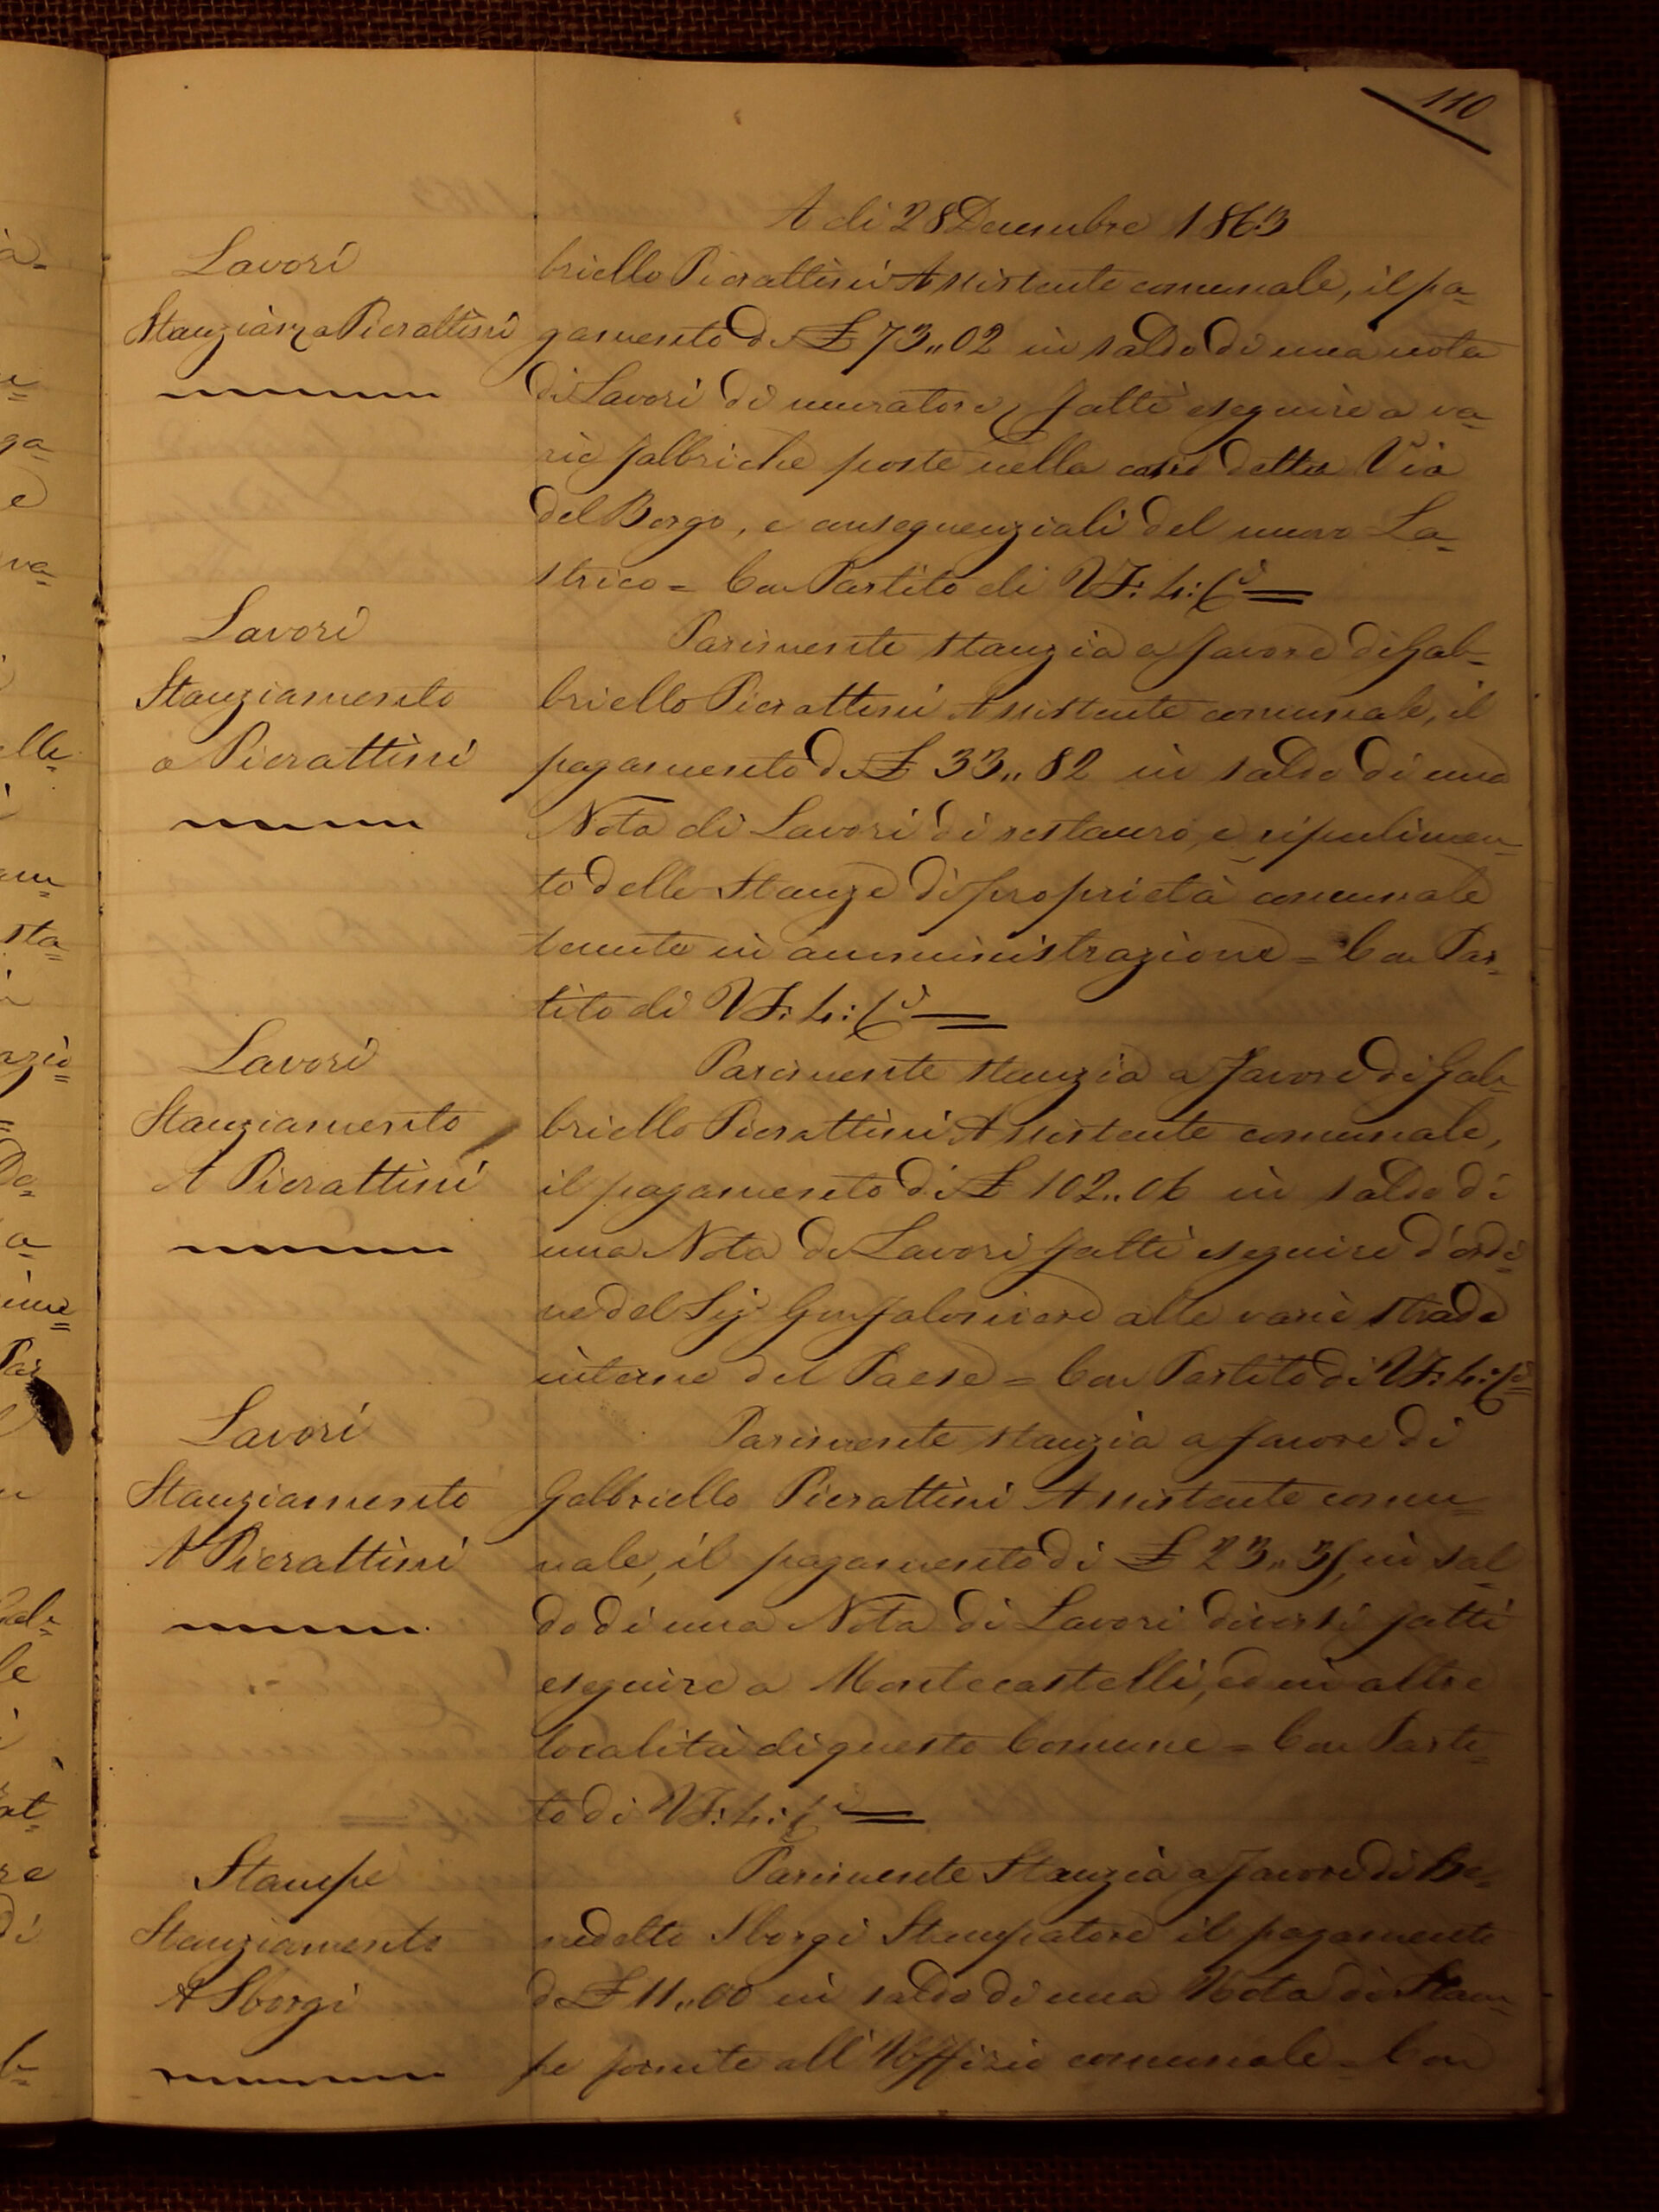 110
A di 28 Decembre 1863
Lavori
Stanziam.a Pierattini
briello Pierattini Assistente comunale, il pa=
gamento di £ 73,,02 in saldo di una nota
di Lavori di muratore fatti eseguire a va=
rie fabbriche poste nella così detta Via
del Borgo, e consequenziali del nuovo La=
strico = Con Partito di VF: 4: Ci
Lavori
Stanziamento
a Pierattini
Parimente stanzia a favore di Gab=
briello Pierattini Assistente comunale, il
pagamento di £ 33,,82 in saldo di una
Nota di Lavori di restauro, e ripulimen=
to delle Stanze di proprietà comunale
tenute in amministrazione = Con Par=
tito di VF: 4: Ci
Lavori
Stanziamento
A Pierattini
Parimente stanzia a favore di Gab=
briello Pierattini Assistente comunale,
il pagamento di £ 102,,06 in saldo di
una Nota di Lavori fatti eseguire d'ordi=
ne del Sig Gonfaloniere alle varie strade
interne del Paese = Con Partito di VF: 4: Ci
Lavori
Stanziamento
A Pierattini
Parimente stanzia a favore di
Gabbriello Pierattini Assistente comu=
nale, il pagamento di £ 23,, in sal=
do di una Nota di Lavori diversi fatti
eseguire a Montecastelli, ed in altre
località di questo Comune = Con Parti=
to di VF: 4: Ci
Stampe
Stanziamento
A Sborgi
Parimente Stanzia a favore di Be=
nedetto Sborgi Stampatore il pagamento
di £ 11,,00 in saldo di una Nota di Stam=
pe fornite all'Uffizio comunale = Con